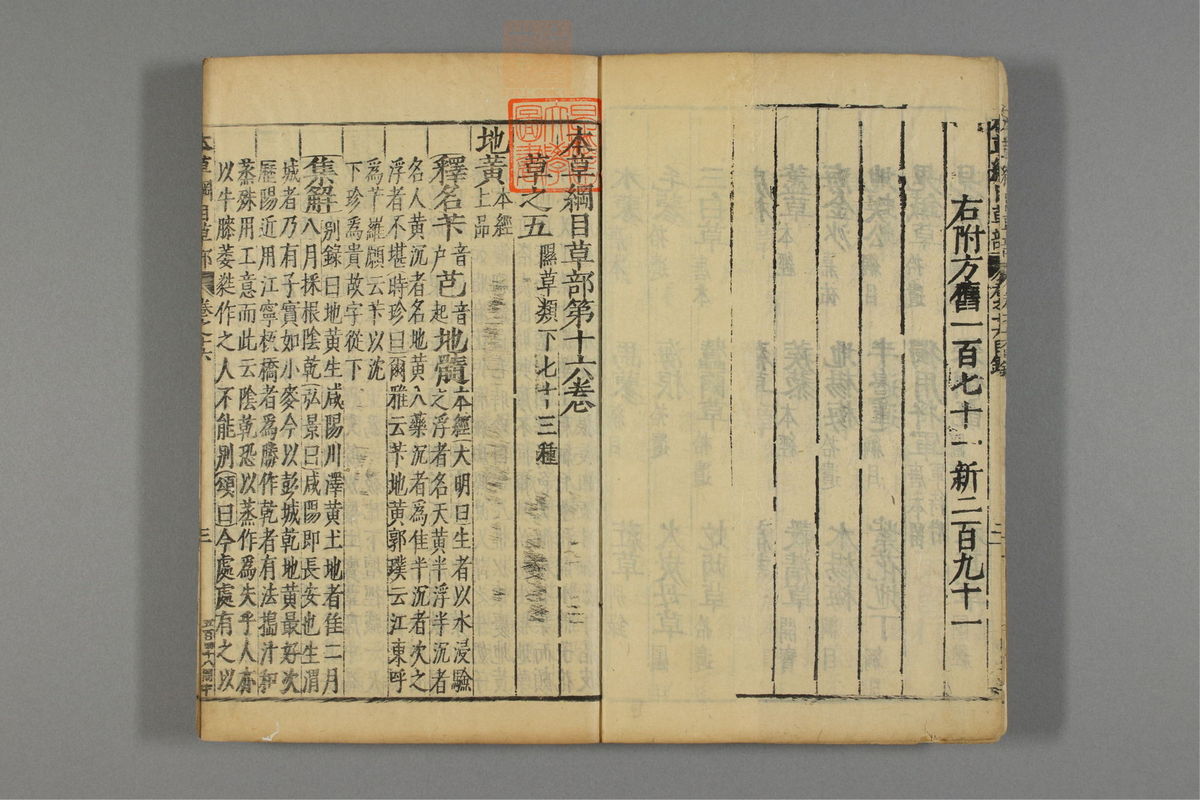 右附方舊一百七十一新二百九十一
本草綱目草部第十六卷
草之五 隰草類下七十三種
地黃 本經上品
釋名 芐音戶芑音起地髓本經大明曰生者以水浸驗
之浮者名天黃半浮半沉者
名人黃沉者名地黃入藥沉者為佳半沉者次之
浮者不堪時珍曰爾雅云芐地黃郭璞云江東呼
為芐羅願云芐以沈
下珍為貴故字從下
集解 別錄曰地黃生咸陽川澤黃土地者佳二月
八月採根陰乾弘景曰咸陽即長安也生渭
城者乃有子實如小麥今以彭城乾地黃最好次
歷陽近用江寧板橋者為勝作乾者有法搗汁和
蒸殊用工意而此云陰乾恐以蒸作為失乎人亦
以牛膝萎蕤作之人不能別頌曰今處處有之以